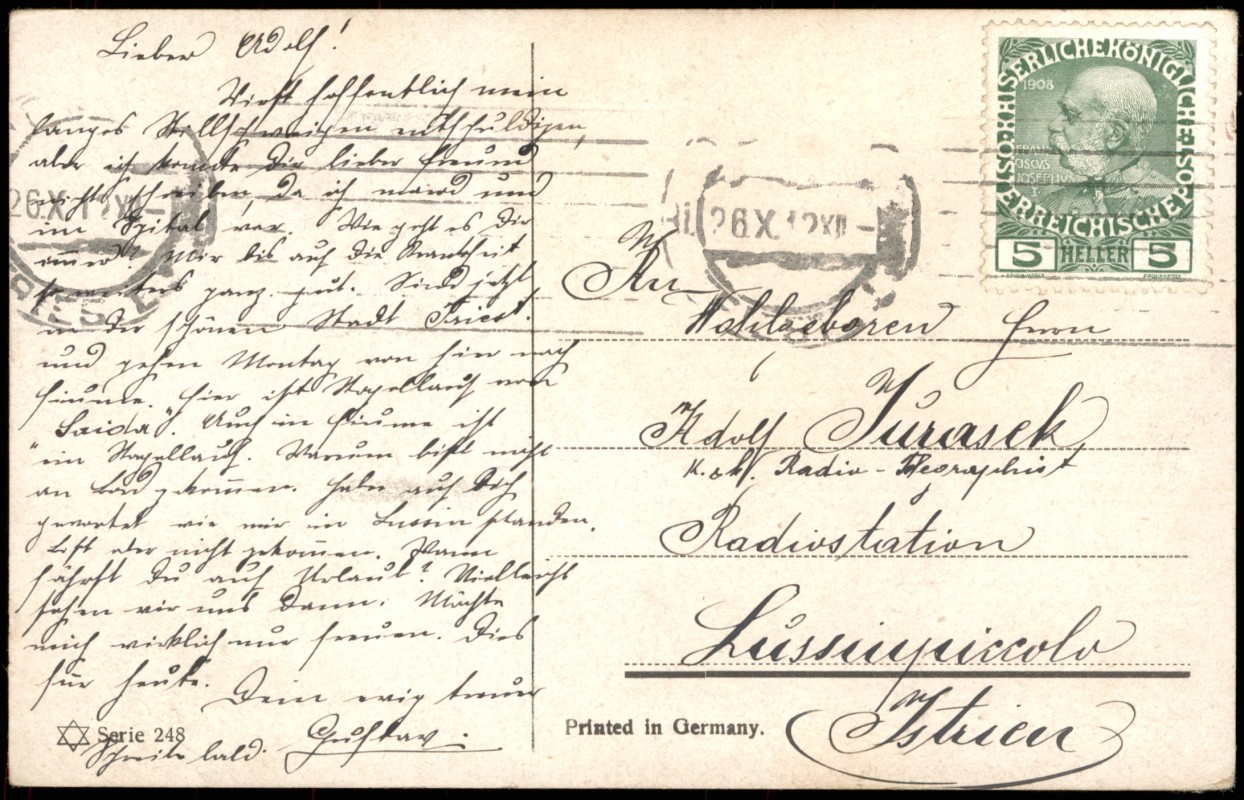 Lieber Adolf!
Wirst hoffentlich mein
langes Stillschweigen entschuldigen,
aber ich konnte Dir lieber Freund
nicht schreiben, da ich und
im Spital war. Wie geht es Dir
immer? Mir bis auf die Krankheit
ganz gut. Sind jetzt
in der schönen Stadt Triest.
und gehen Montag von hier nach
Fiume. Hier ist Stapellauf vom
"Saida". Auch in Fiume ist
ein Stapellauf. Warum bist nicht
an Bord gekommen. Habe auf Dich
gewartet wie wir in Lussin standen.
bist aber nicht gekommen. Wann
fährst Du auf Urlaub? Vielleicht
sehen wir uns dann. Möchte
mich wirklich nur freuen. Dies
für heute.
Dein ewig treuer
Gustav.
Schreibe bald.
Serie 248
Printed in Germany.
26.X.12 XII
TRIEST
26.X.12 XII
KAISERLICHEKÖNIGLICHE ÖSTERREICHISCHE POST
1908
FRANCISCVS JOSEPHVS I
5 HELLER 5
An
Wohlgeboren Herrn
Adolf Jurasek
k.u.k. Radio-Telegraphist
Radiostation
Lussinpiccolo
Istrien